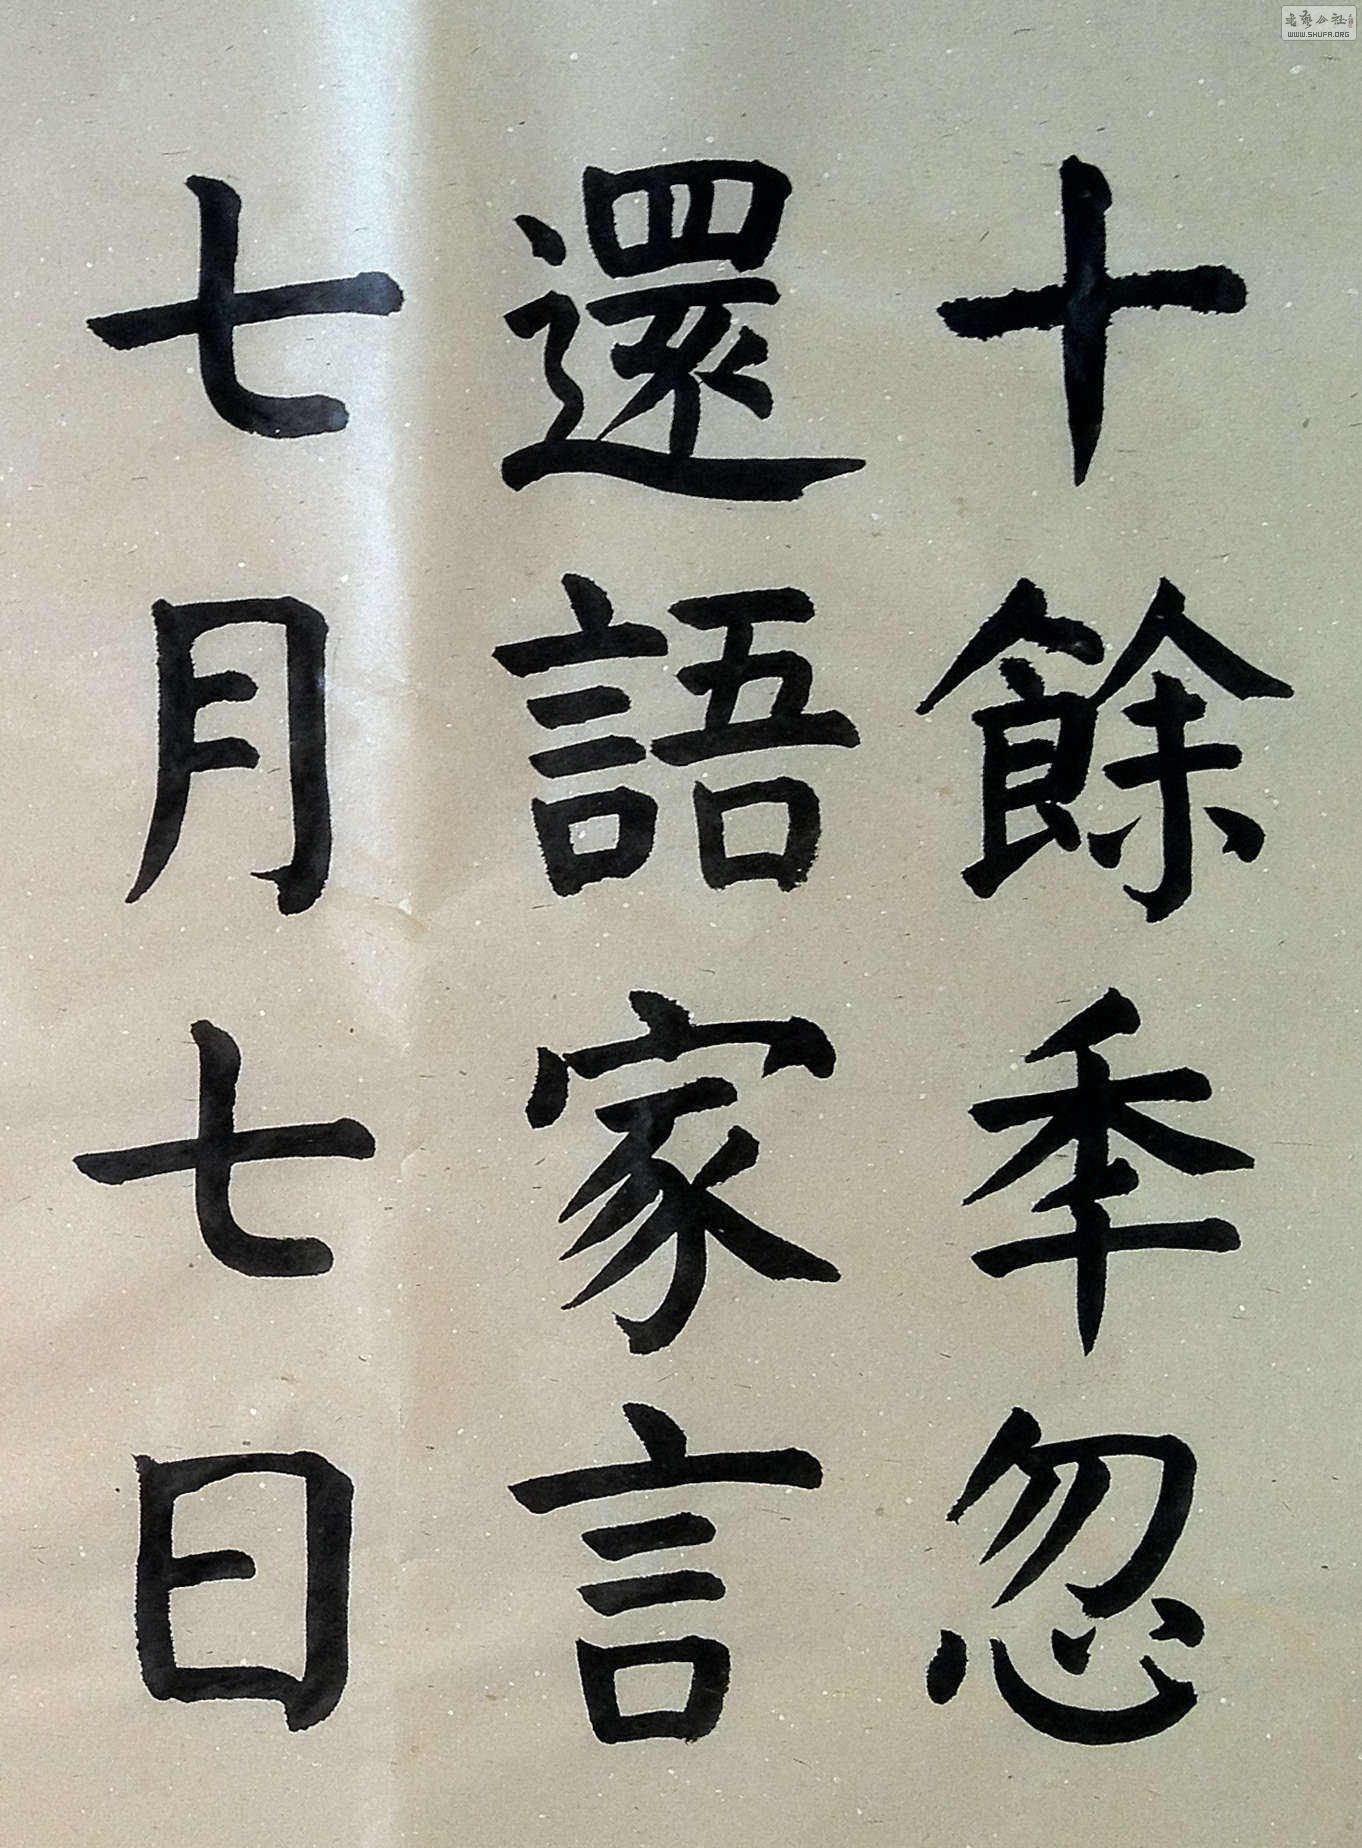 十餘秊忽
還語家言
七月七日
書藝公社
WWW.SHUFA.ORG